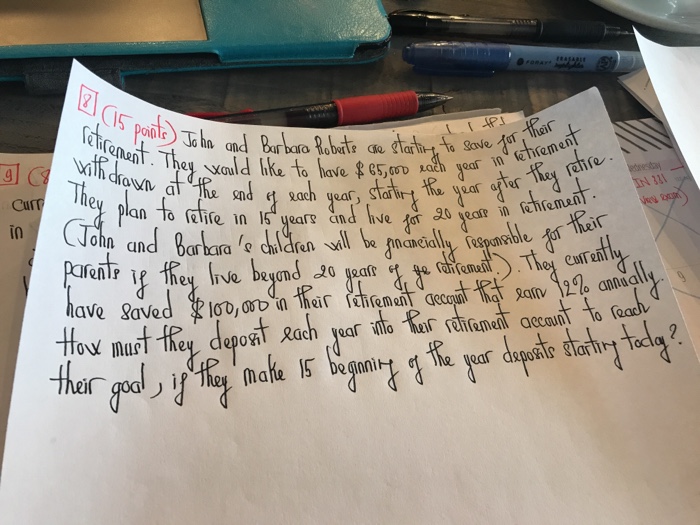 8 (15 points) John and Barbara Roberts are starting to save for their
retirement. They would like to have $65,000 each year in retirement
withdrawn at the end of each year, starting the year after they retire.
They plan to retire in 15 years and live for 20 years in retirement.
(John and Barbara's children will be financially responsible for their
parents if they live beyond 20 years of retirement.). They currently
have saved $100,000 in their retirement account that earn 12% annually.
How must they deposit each year into their retirement account to reach
their goal, if they make 15 beginning of the year deposits starting today?
9 (8
curr
in